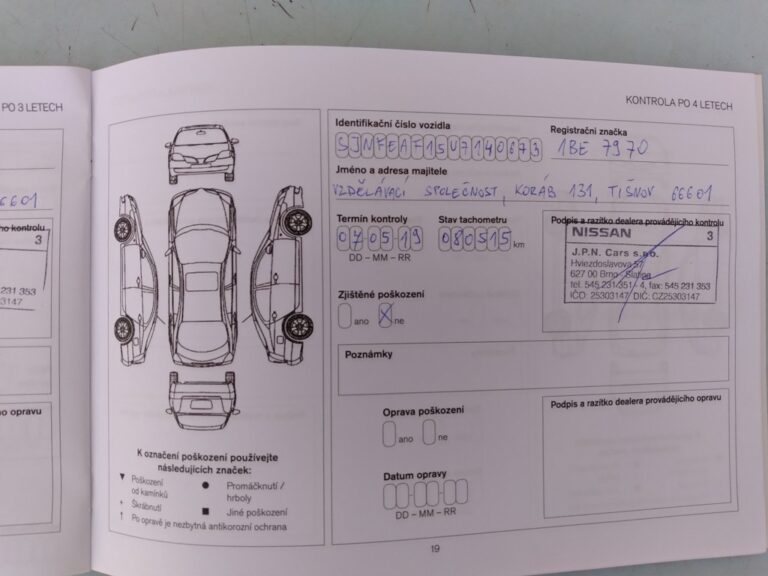 PO 3 LETECH
KONTROLA PO 4 LETECH
6601
o kontrolu
3
231 353
303147
ho opravu
K označení poškození používejte
následujících značek:
▼ Poškození
od kamínků
+ Škrábnutí
● Promáčknutí /
hrboly
■ Jiné poškození
↑ Po opravě je nezbytná antikorozní ochrana
Identifikační číslo vozidla
SJNFEAF15U7140673
Registrační značka
1BE 7970
Jméno a adresa majitele
VZDĚLÁVACÍ SPOLEČNOST, KORÁB 131, TIŠNOV 66601
Termín kontroly
07 05 19
DD – MM – RR
Stav tachometru
080515 km
Podpis a razítko dealera provádějícího kontrolu
NISSAN 3
J.P.N. Cars s.r.o.
Hviezdoslavova 57
627 00 Brno - Slatina
tel. 545 231 351 - 4, fax: 545 231 353
IČO: 25303147 DIČ: CZ25303147
Zjištěné poškození
ano X ne
Poznámky
Oprava poškození
ano ne
Podpis a razítko dealera provádějícího opravu
Datum opravy
DD – MM – RR
19